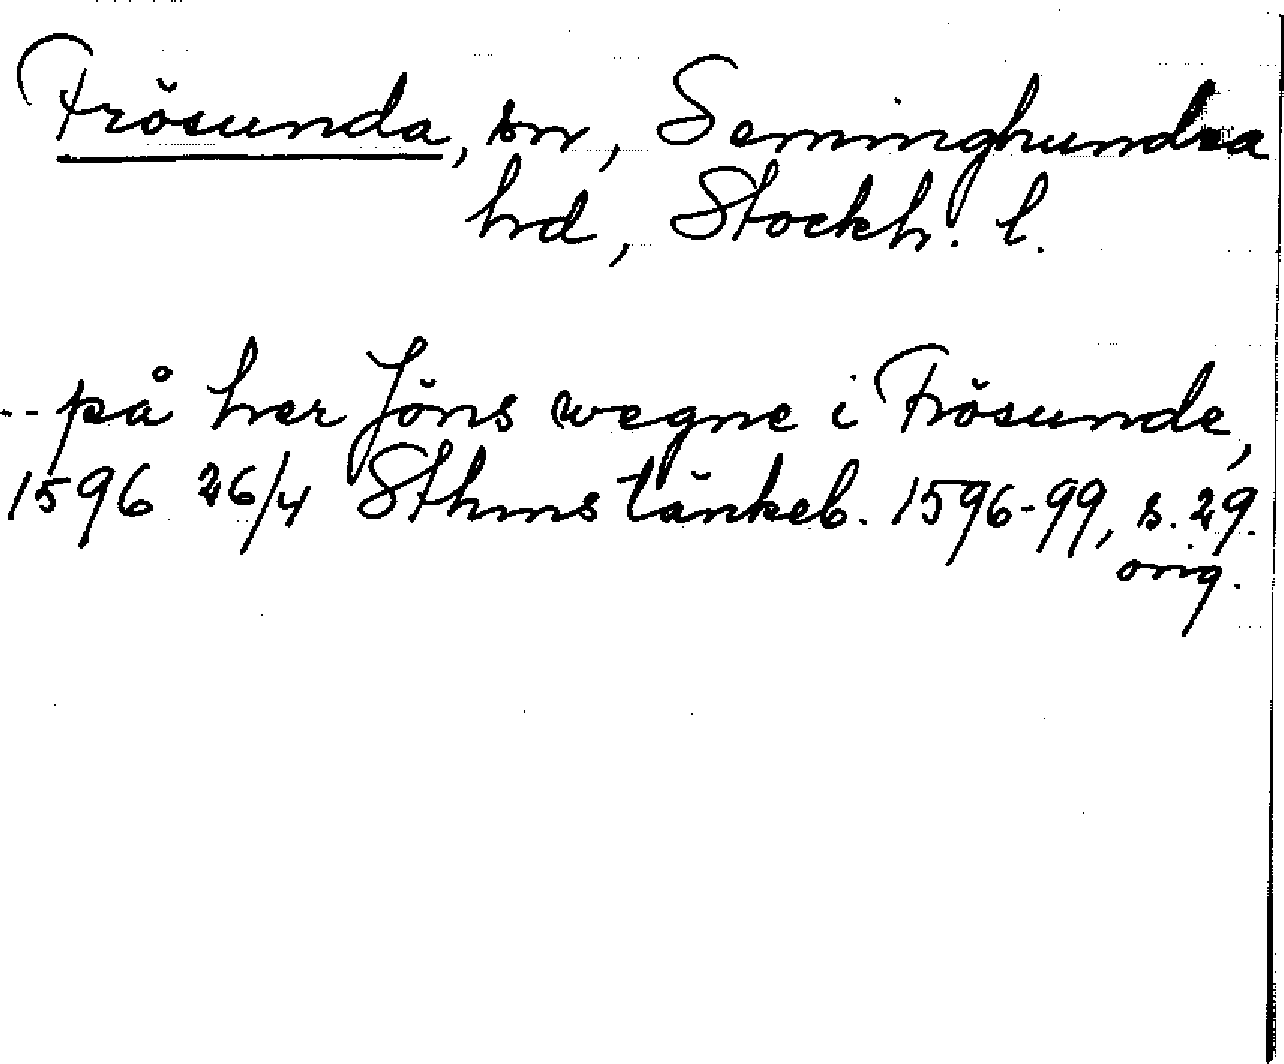 Frösunda, sn, Seminghundra
hd, Stockh. l.
-- på her Jöns wegne i Frösunde,
1596 26/4 Sthms tänkeb. 1596-99, s. 29.
orig.